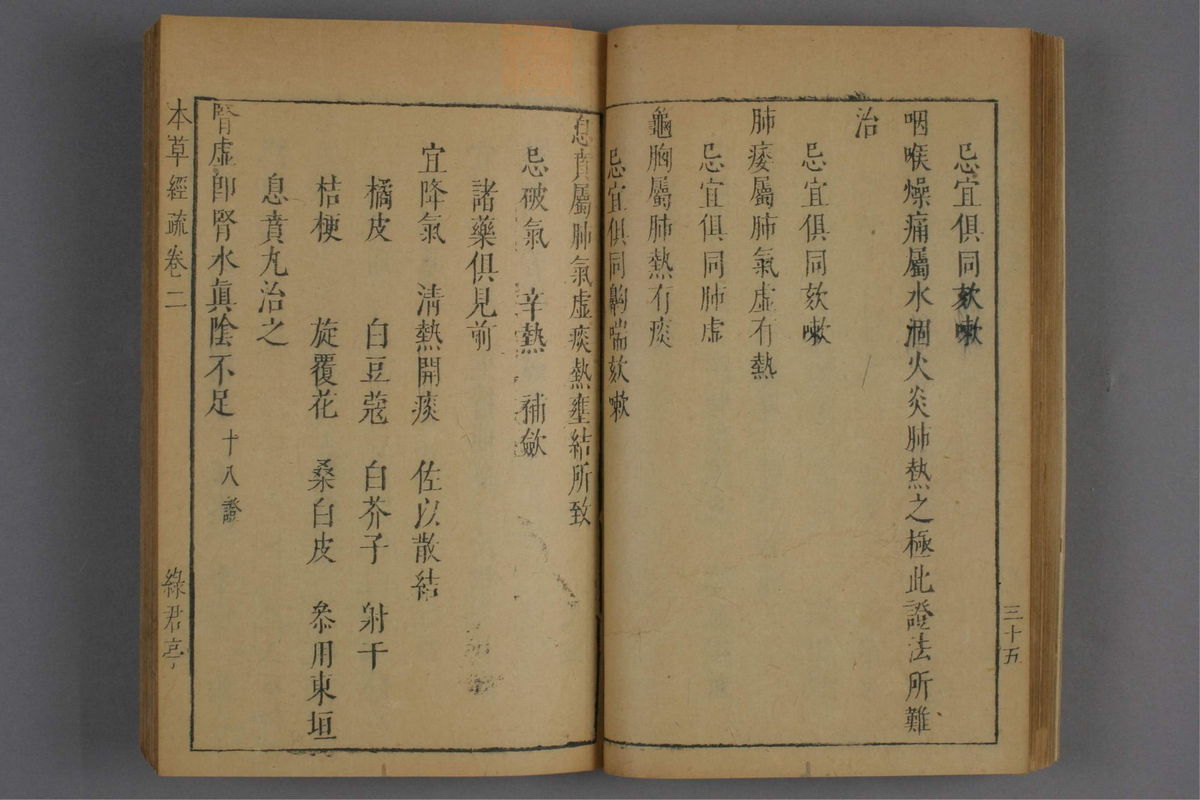 忌宜俱同欬嗽
咽喉燥痛屬水涸火炎肺熱之極此證法所難
治
忌宜俱同欬嗽
肺痿屬肺氣虛有熱
忌宜俱同肺虛
龜胸屬肺熱有痰
忌宜俱同齁喘欬嗽
三十五
息賁屬肺氣虛痰熱壅結所致
忌破氣 辛熱 補斂
諸藥俱見前
宜降氣 清熱開痰 佐以散結
橘皮 白豆蔻 白芥子 射干
桔梗 旋覆花 桑白皮 叅用東垣
息賁丸治之
腎虛卽腎水眞陰不足 十八證
本草經疏卷二
綠君亭